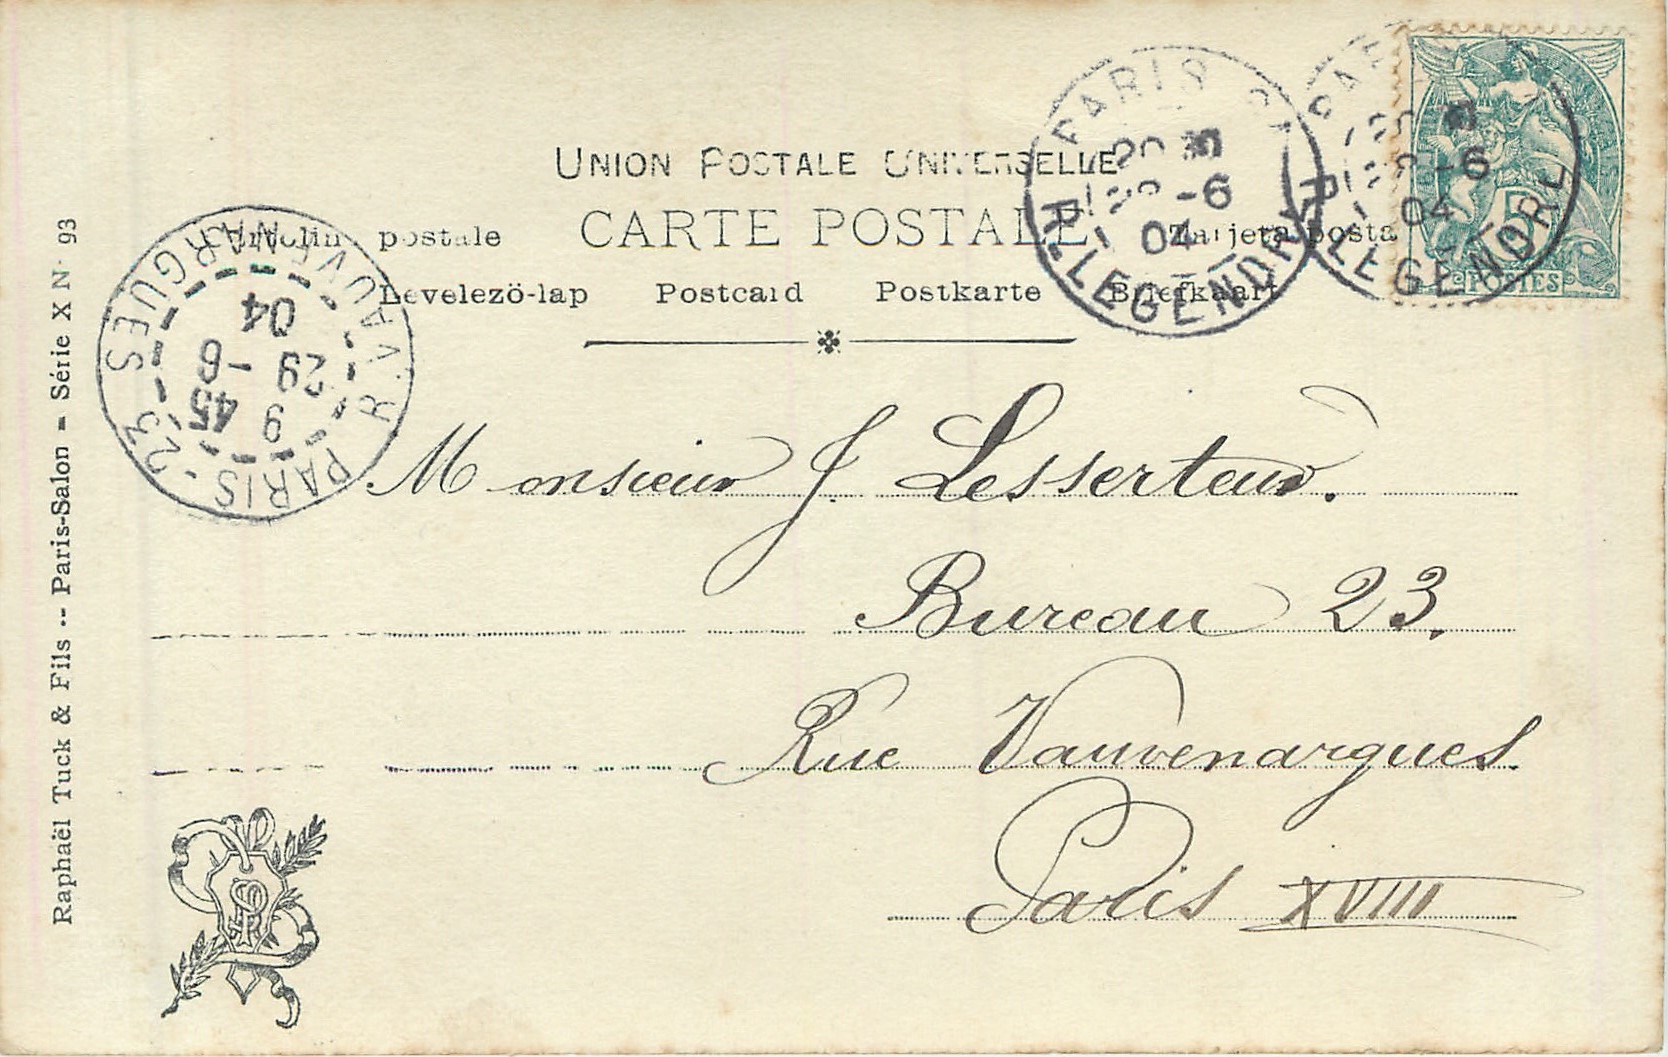 UNION POSTALE UNIVERSELLE
CARTE POSTALE
postale
Levelezö-lap Postcard Postkarte Briefkaart
PARIS
R. LEGENDRE
-6
04
PARIS
LEGENDRE
-6
04
5
POSTES
PARIS-23 R. VAUVENARGUES
9 45
29 -6
04
Monsieur J. Lesserteur.
Bureau 23.
Rue Vauvenargues.
Paris XVIII
Raphaël Tuck & Fils -- Paris-Salon - Série X N° 93